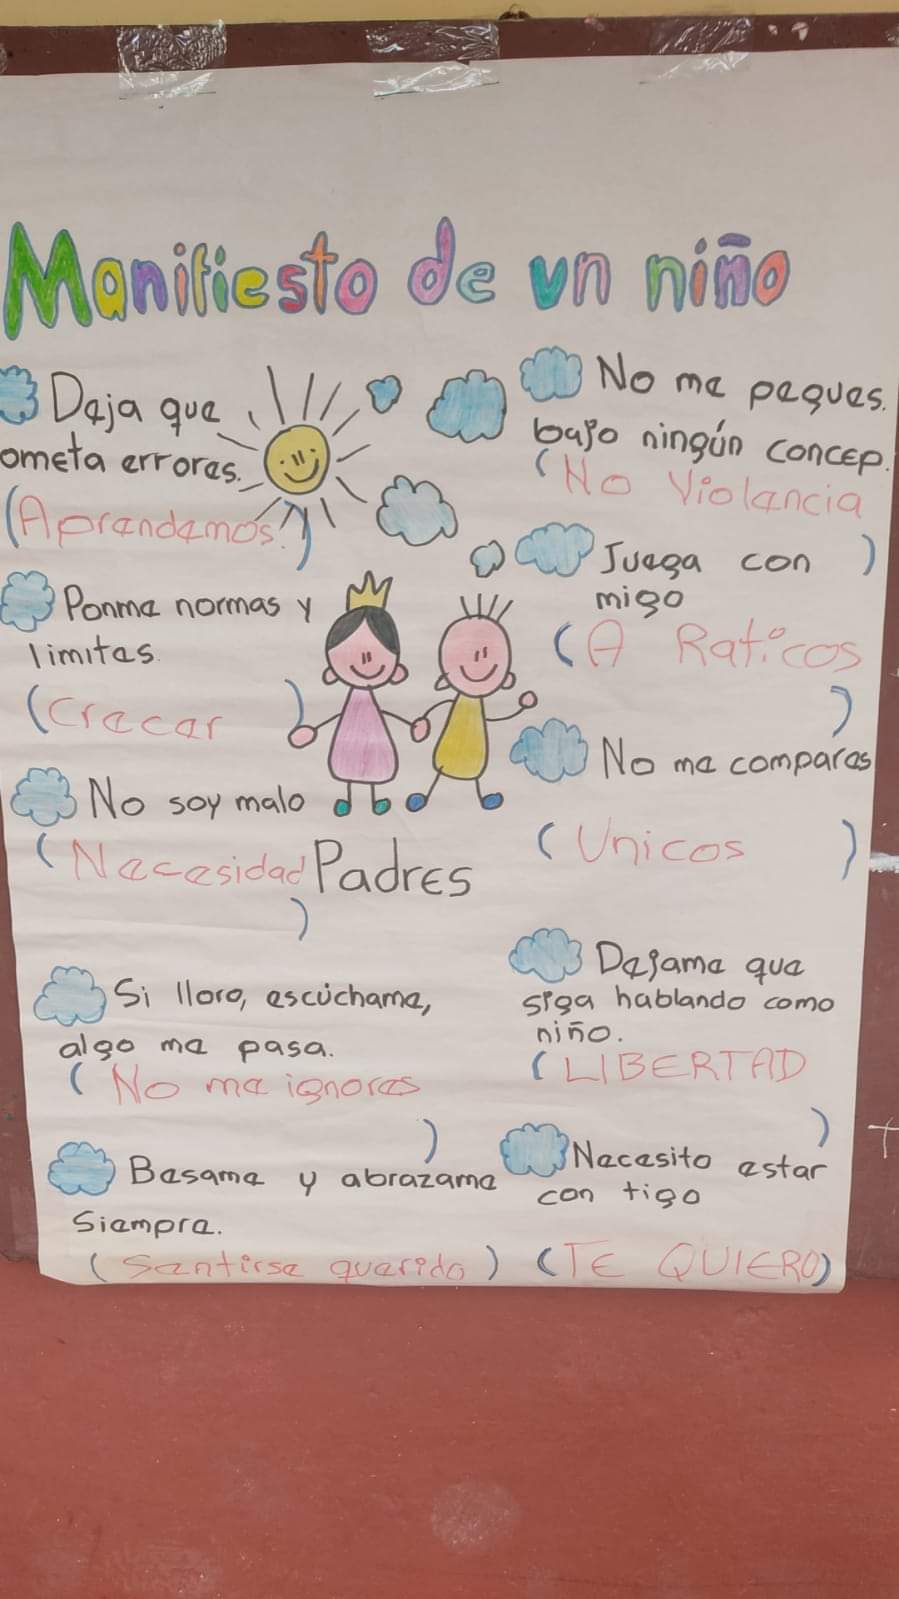 Manifiesto de un niño
Deja que
ometa errores.
(Aprendemos.)
Ponme normas y
limites.
(Crecer)
No soy malo
(Necesidad)
Padres
Si lloro, escúchame,
algo me pasa.
(No me ignores)
Besame y abrazame
siempre.
(Sentirse querido)
No me pegues.
bajo ningún concep.
(No Violencia)
Juega con
migo
(A Raticos)
No me compares
(Unicos)
Dejame que
siga hablando como
niño.
(LIBERTAD)
Necesito estar
con tigo
(TE QUIERO)